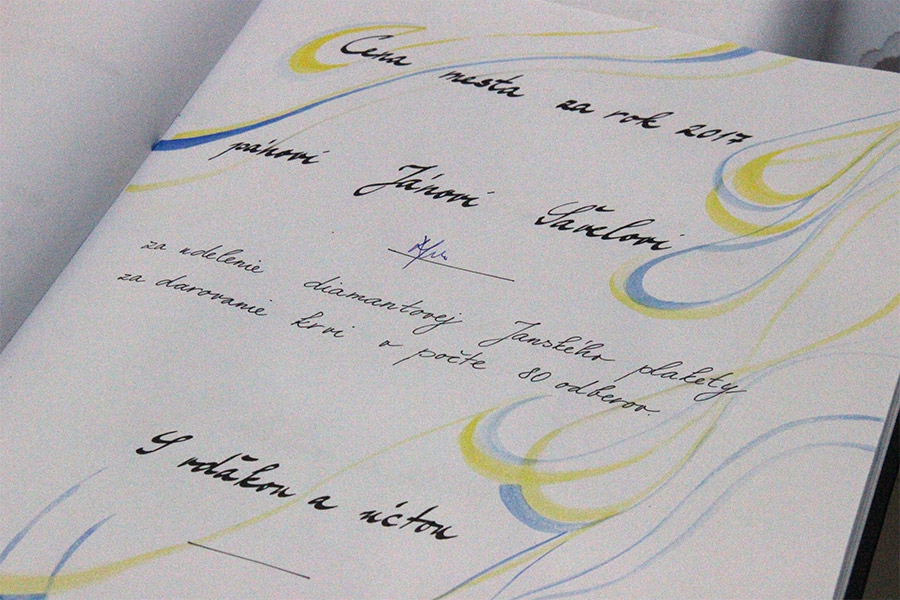 Cena mesta za rok 2017
pánovi Jánovi Šavelovi
za udelenie diamantovej Janského plakety
za darovanie krvi v počte 80 odberov.
S vďakou a úctou